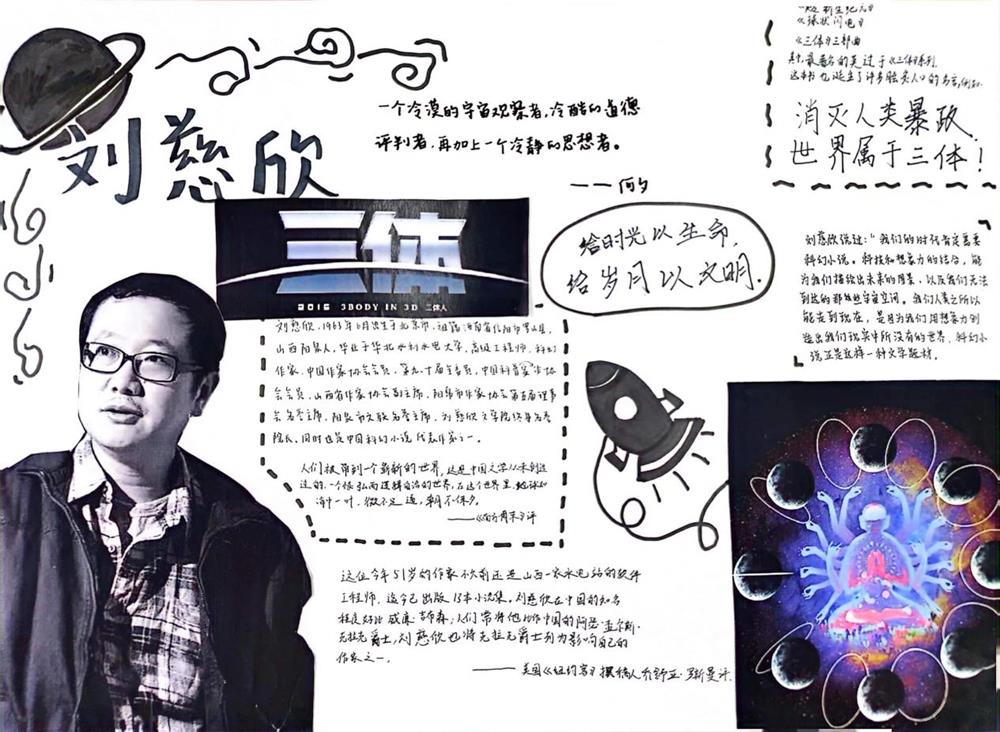 刘慈欣
一个冷漠的宇宙观察者,冷酷的道德
评判者,再加上一个冷静的思想者。
——何夕
《球状闪电》
《三体》三部曲
其中,最著名的莫过于《三体》系列.
这本书也诞生了许多脍炙人口的名言,例如:
消灭人类暴政.
世界属于三体!
三体
2015 3BODY IN 3D 三体人
给时光以生命,
给岁月以文明.
刘慈欣说过:"我们的时代肯定需要
科幻小说。科技和想象力的结合,能
为我们描绘出未来的图景,以及我们无法
到达的那些些宇宙空间。我们人类之所以
能走到现在,是因为我们用想象力创
造出我们现实中所没有的世界,科幻小
说正是这样一种文学题材。
刘慈欣,1963年6月出生于北京市,祖籍河南省信阳市罗山县,
山西阳泉人,毕业于华北水利水电大学,高级工程师,科幻
作家,中国作家协会会员,第九、十届全委,中国科普作家协
会会员,山西省作家协会副主席,阳泉市作家协会第五届理事
会名誉主席,阳泉市文联名誉主席,刘慈欣文学院终身名誉
院长,同时也是中国科幻小说代表作家之一。
人们被带到一个崭新的世界,这是中国文学从未到达
过的,一个恢弘而逻辑自洽的世界,在这个世界里,地球如
海中一叶,微不足道,朝不保夕。
——《南方周末》评
这位今年51岁的作家不久前还是山西一家水电站的软件
工程师,迄今已出版13本小说集。刘慈欣在中国的知名
程度好比威廉·吉布森;人们常将他比作中国的阿瑟·查尔斯·
克拉克爵士,刘慈欣也将克拉克爵士列为影响自己的
作家之一。
——美国《纽约客》撰稿人乔舒亚·罗斯曼评.